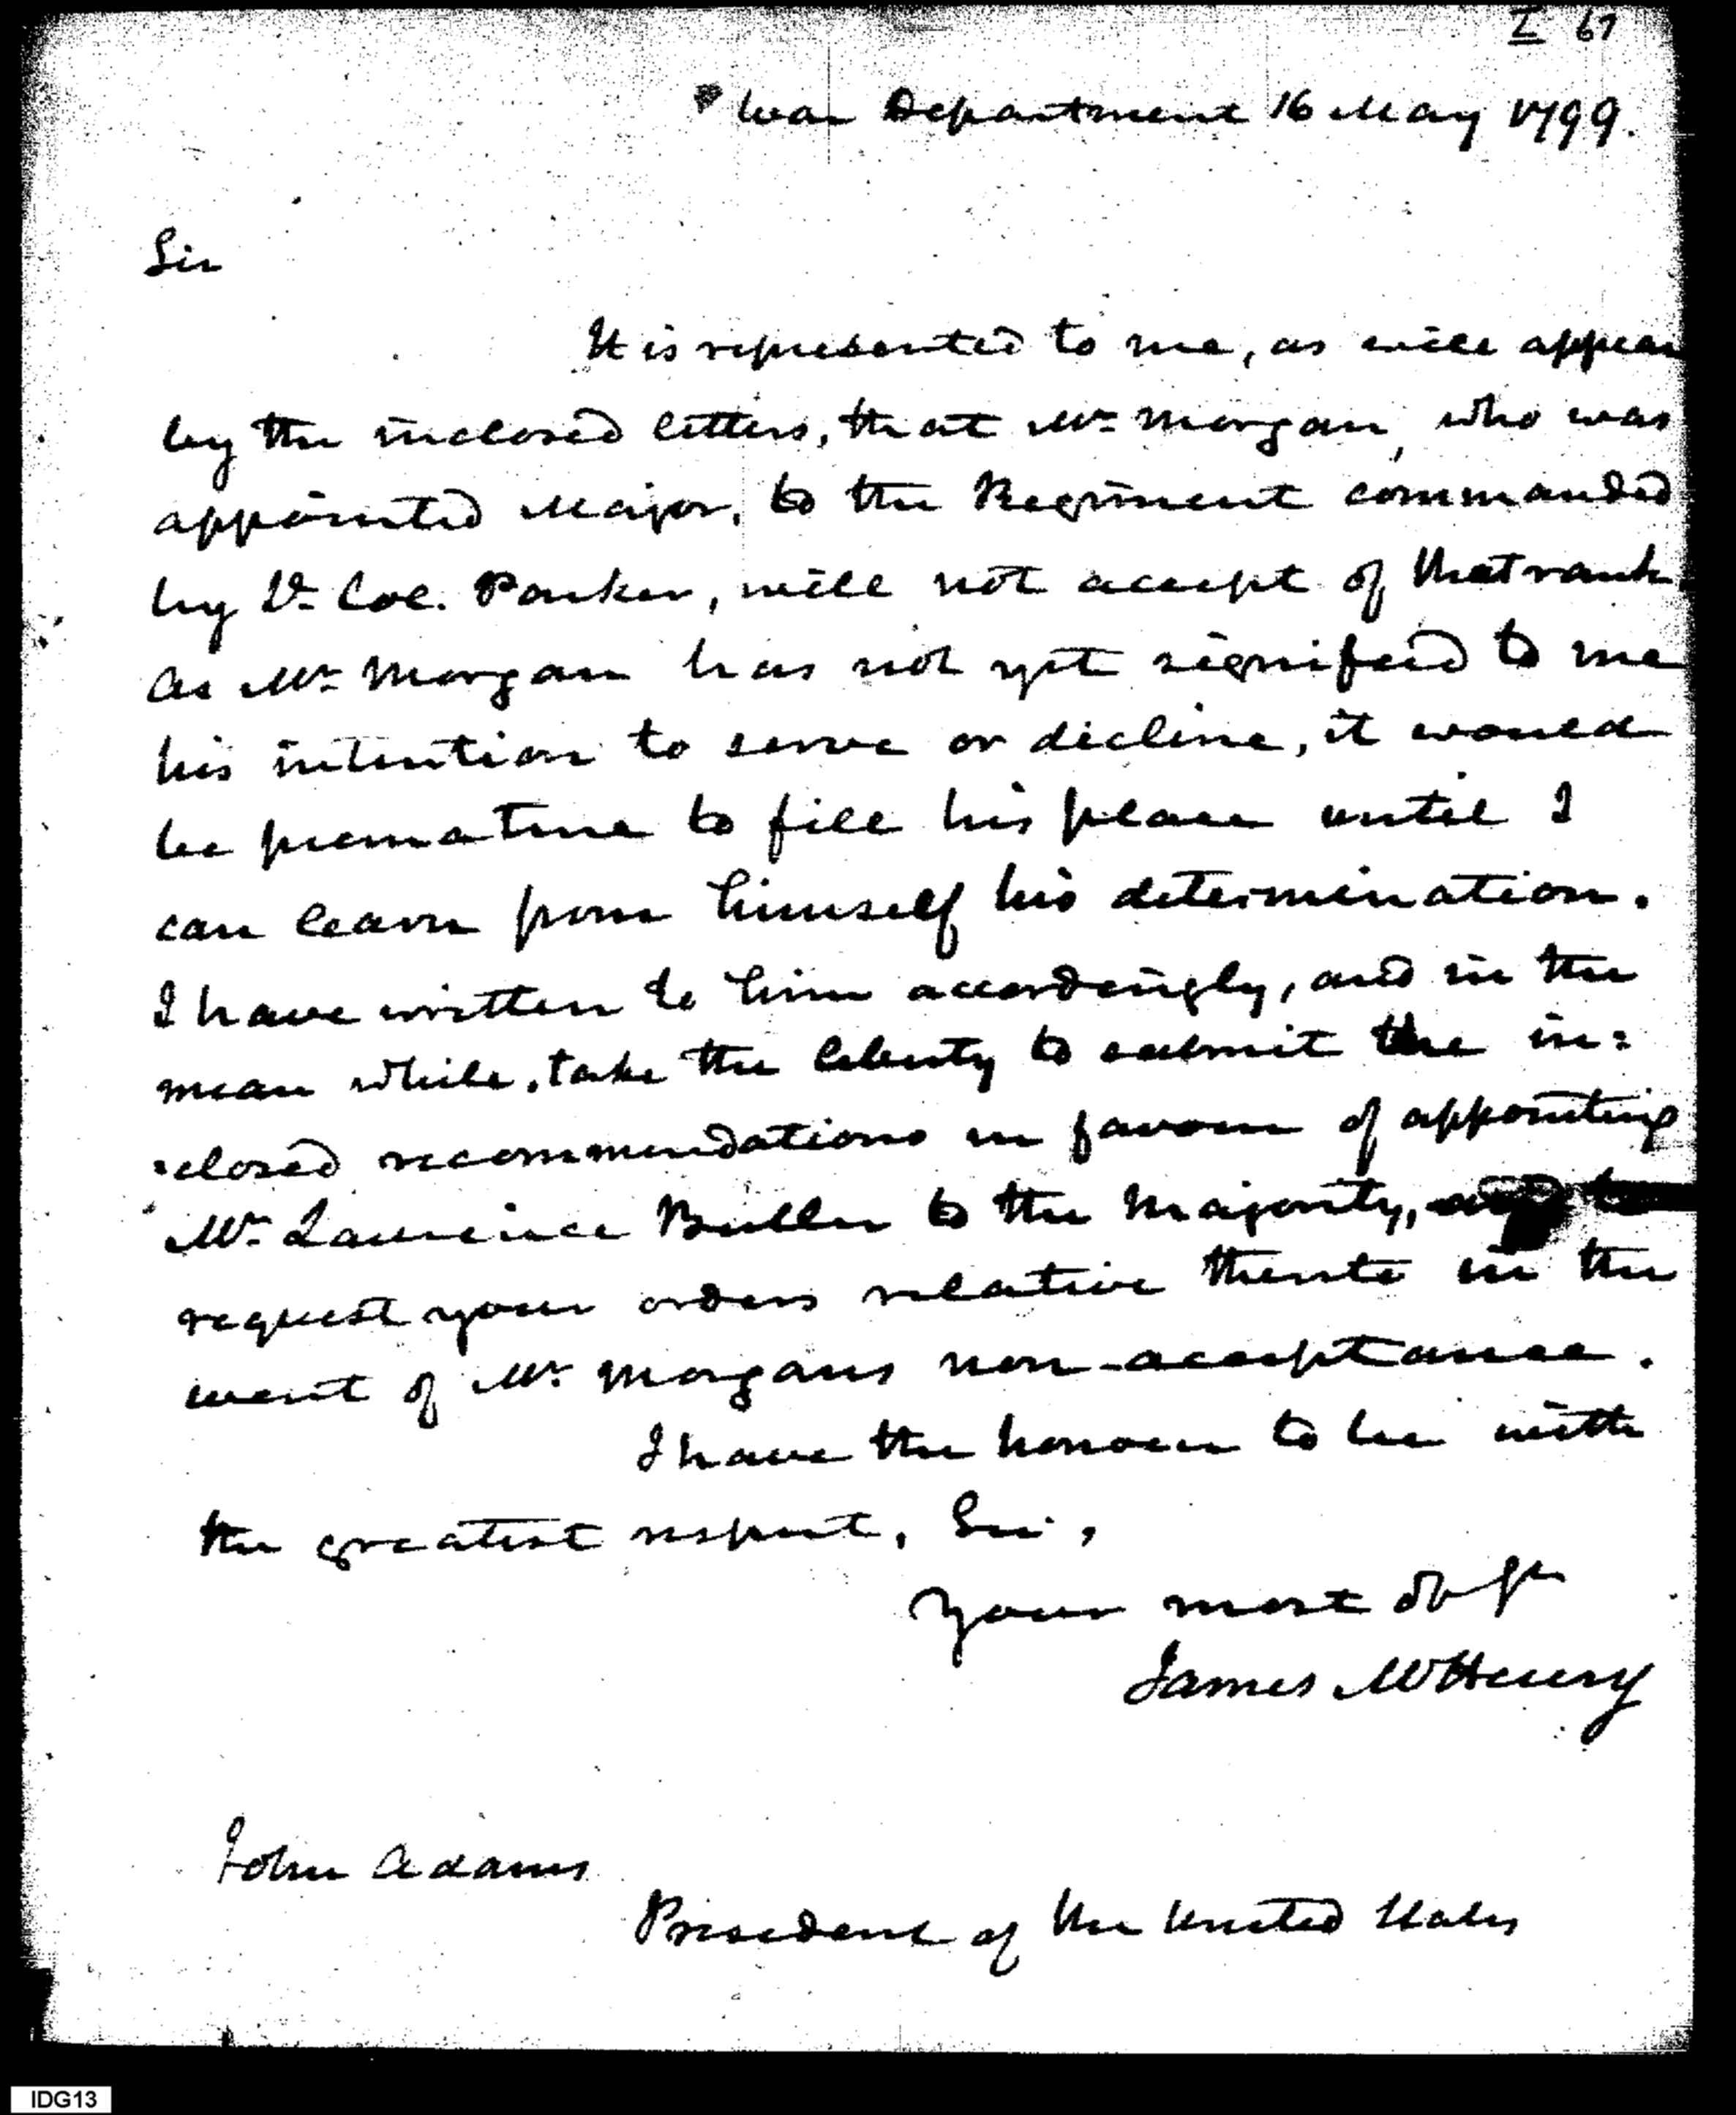 I 67
War Department 16 May 1799.
Sir
It is represented to me, as will appear
by the inclosed letters, that Mr. Morgan, who was
appointed Major, to the Regiment commanded
by Lt. Col. Parker, will not accept of that rank
As Mr. Morgan has not yet signified to me
his intention to serve or decline, it would
be premature to fill his place until I
can learn from himself his determination.
I have written to him accordingly, and in the
mean while, take the liberty to submit the in=
=closed recommendations in favour of appointing
Mr. Lawrence Butler to the Majority, and to
request your orders relative thereto in the
event of Mr. Morgans non-acceptance.
I have the honour to be with
the greatest respect, Sir,
Your most ob
James McHenry
John Adams
President of the United States
IDG13